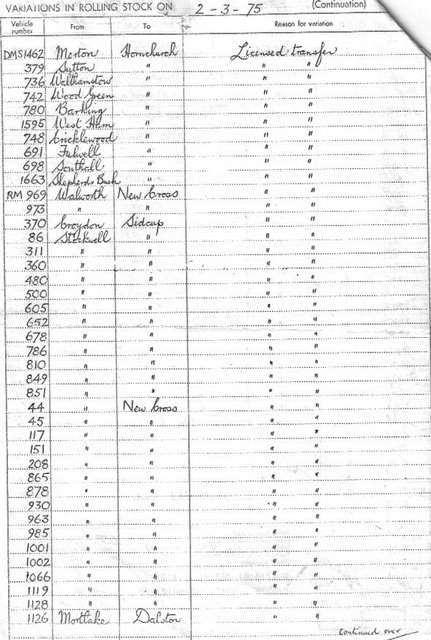 VARIATIONS IN ROLLING STOCK ON 2-3-75 (Continuation)
Vehicle number From To Reason for variation
DMS1462 Merton Hornchurch Licensed transfer
379 Sutton " " "
736 Walthamstow " " "
742 Wood Green " " "
780 Barking " " "
1595 West Ham " " "
748 Cricklewood " " "
691 Fulwell " " "
698 Southall " " "
1663 Shepherds Bush " " "
RM 969 Walworth New Cross " "
973 " " " "
370 Croydon Sidcup " "
86 Stockwell " " "
311 " " " "
360 " " " "
480 " " " "
500 " " " "
605 " " " "
652 " " " "
678 " " " "
786 " " " "
810 " " " "
849 " " " "
851 " " " "
44 " New Cross " "
45 " " " "
117 " " " "
151 " " " "
208 " " " "
865 " " " "
878 " " " "
930 " " " "
963 " " " "
985 " " " "
1001 " " " "
1002 " " " "
1066 " " " "
1119 " " " "
1128 " " " "
1126 Mortlake Dalston " "
Continued over